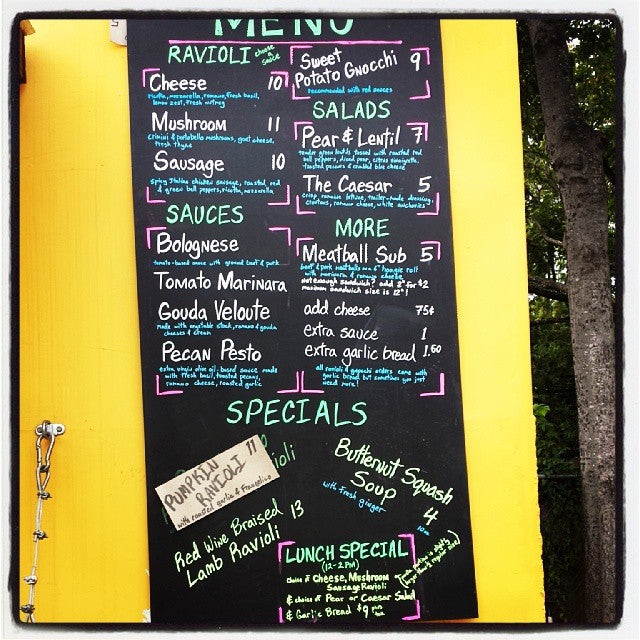 MENU
RAVIOLI choose a sauce
Cheese 10
ricotta, mozzarella, romano, fresh basil,
lemon zest, fresh nutmeg
Mushroom 11
crimini & portobello mushrooms, goat cheese,
fresh thyme
Sausage 10
spicy Italian chicken sausage, roasted, red
& green bell peppers, ricotta, mozzarella
SAUCES
Bolognese
tomato-based sauce with ground beef & pork
Tomato Marinara
Gouda Veloute
made with vegetable stock, romano & gouda
cheeses & cream
Pecan Pesto
extra virgin olive oil-based sauce made
with fresh basil, toasted pecans,
romano cheese, roasted garlic
Sweet
Potato Gnocchi 9
recommended with red sauces
SALADS
Pear & Lentil 7
tender green lentils tossed with roasted red
bell peppers, diced pear, citrus vinaigrette,
toasted pecans & crumbled blue cheese
The Caesar 5
crisp romaine lettuce, trailer-made dressing,
croutons, romano cheese, white anchovies
MORE
Meatball Sub 5
beef & pork meatballs on a 6" hoagie roll
with marinara & romano cheese
not enough sandwich? add 3" for $2
maximum sandwich size is 12"!
add cheese 75¢
extra sauce 1
extra garlic bread 1.50
all ravioli & gnocchi orders come with
garlic bread but sometimes you just
need more!
SPECIALS
PUMPKIN
RAVIOLI 11
with roasted garlic & Frangelico
Red Wine Braised 13
Lamb Ravioli
Butternut Squash
Soup 4
with fresh ginger
10oz
LUNCH SPECIAL
(12-2PM)
choice of Cheese, Mushroom
Sausage Ravioli
& choice of Pear or Caesar Salad
& Garlic Bread $9